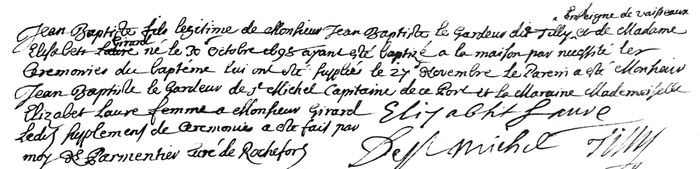 Enseigne de vaisseaux
Jean Baptiste fils legitime de Monsieur Jean Baptiste le Gardeur de Tilly et de Madame
Girard
Elisabet Laure né le 30 octobre 1698 ayant été baptizé a la maison par necessité les
Ceremonies du baptéme lui ont eté supplées le 27 Novembre le Parein a eté Monsieur
Jean Baptiste le Gardeur de St Michel Capitaine de ce Port et la Maraine Mademoiselle
Elizabet Laure femme a Monsieur Girard Elizabhit Laure
Ledit supplement de Ceremonies a eté fait par
moy De Parmentier curé de Rochefort Michel Tilly